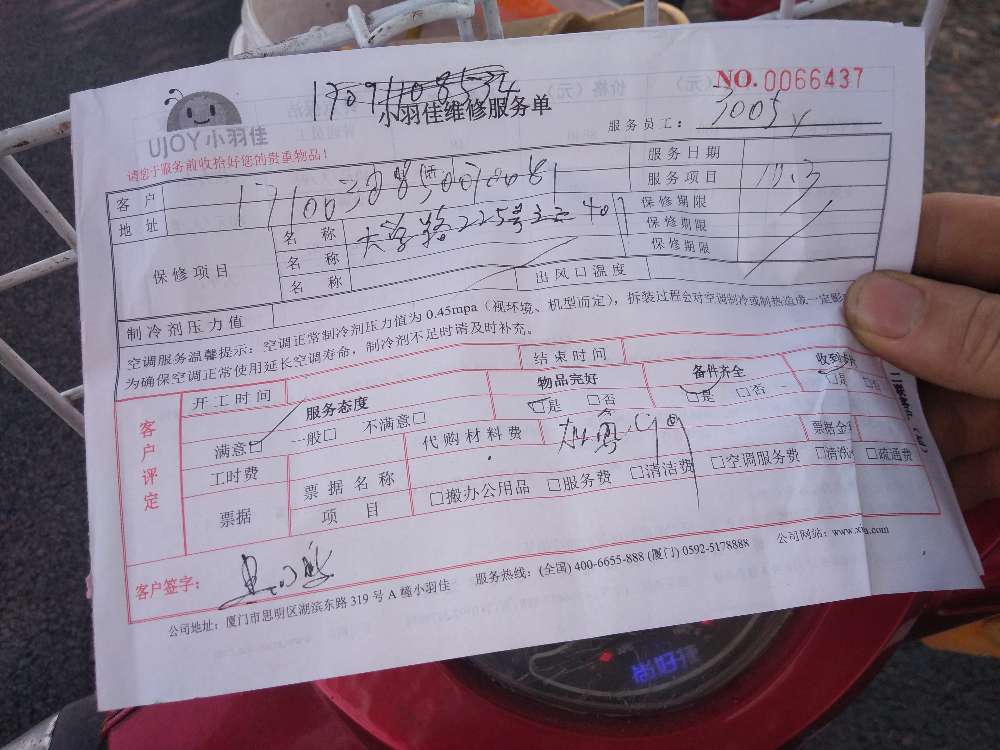 NO.0066437
UJOY小羽佳
小羽佳维修服务单
请您于服务前收拾好您的贵重物品!
服务员工: 3005
客户
服务日期
地址
服务项目
保修项目
名称 大学路225号之二401
保修期限
名称
保修期限
名称
保修期限
制冷剂压力值
出风口温度
空调服务温馨提示:空调正常制冷剂压力值为0.45mpa(视环境、机型而定),拆装过程会对空调制冷或制热造成一定影
为确保空调正常使用延长空调寿命,制冷剂不足时请及时补充。
客户评定
开工时间
结束时间
服务态度
物品完好
备件齐全
收到
满意□ 一般□ 不满意□
□是 □否
□是 □否
□是
工时费
代购材料费
票据
票据名称
票据金
项目
□搬办公用品 □服务费 □清洁费 □空调服务费 □清洗 □疏通费
客户签字:
公司地址:厦门市思明区湖滨东路319号A幢小羽佳
服务热线:(全国)400-6655-888(厦门)0592-5178888
公司网站:www.xyj.com